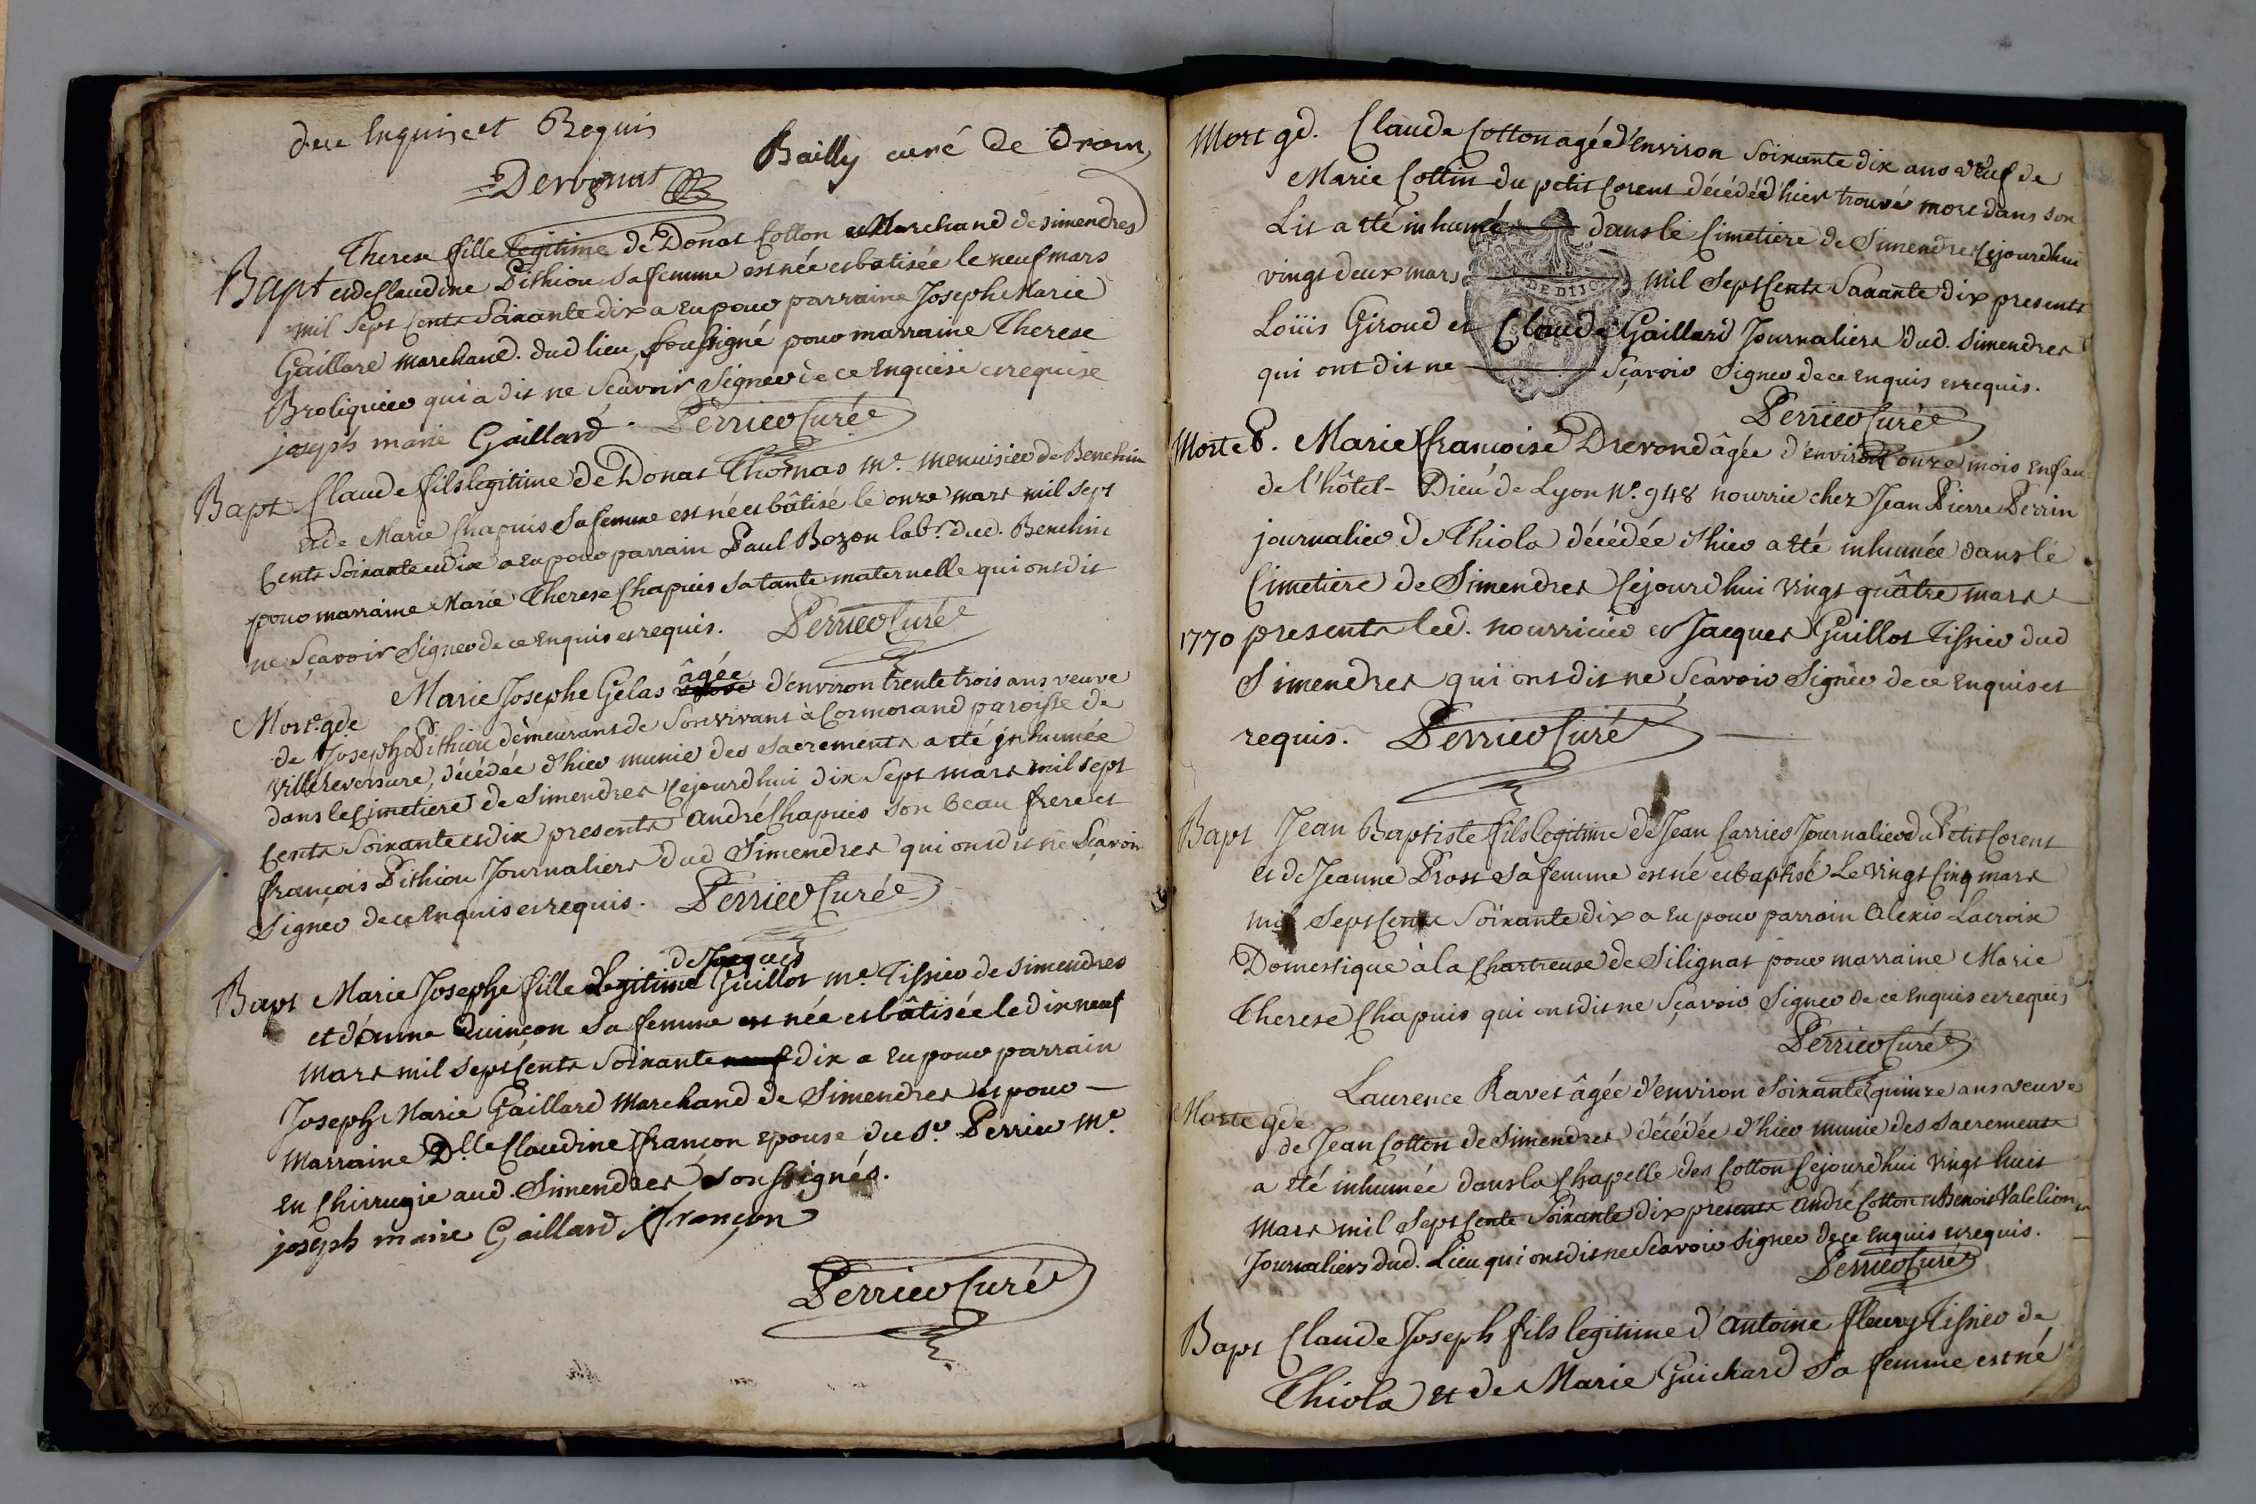 de ce Enquise et Requis
Bailly curé de Drom
Dervonat
Therese fille legitime de Donat Cotton Marchand de simendres
Bapt et de Claudine Pithiou sa femme est née et batisée le neuf mars
mil sept Cents Soixante dix a eu pour parraine Joseph Marie
Gaillard marchand dud lieu soussigné pour marraine Therese
Broliquier qui a dit ne Scavoir Signer de ce Enquise et requise
joseph marie Gaillard. Perrier Curé
Bapt Claude fils legitime de Donat Thomas Me. menuisier de Benchin
et de Marie Chapuis Sa femme est né et bâtisé le onze mars mil sept
Cents Soixante et dix a eu pour parrain Paul Bozon labr. dud. Benchin
pour marraine Marie Therese Chapuis Sa tante maternelle qui ont dit
ne Sçavoir Signer de ce Enquis et requis. Perrier Curé
Marie Josephe Gelas âgée d'environ trente trois ans veuve
Morte gde de Joseph Pithiou demeurant de Son vivant à Cormorand paroisse de
Villereversure, décédée d'hier munie des Sacrements a eté inhumée
dans le Cimetiere de Simendres Cejourdhui dix Sept mars mil sept
Cents Soixante et dix presents André Chapuis son beau frere et
françois Pithiou Journaliers dud Simendres qui ont dit ne Sçavoir
Signer de ce Enquis et requis. Perrier Curé
de Jacques
Bapt Marie Josephe fille legitime Guillot me. Tissier de simendres
et d'anne Quinçon Sa femme est née et bâtisée le dix neuf
mars mil sept Cents Soixante neuf dix a eu pour parrain
Joseph Marie Gaillard marchand de Simendres et pour
marraine Dlle Claudine françon epouse du Sr. Perrier Me.
en Chirrugie aud. Simendres Soussignés.
joseph marie Gaillard françon
Perrier Curé
Mort gd. Claude Cotton agée d'Environ Soixante dix ans veuf de
Marie Cottin du petit Corent décédé d'hier trouvé mort dans son
Lit a eté inhumé dans le Cimetiere de Simendres Cejourdhui
vingt deux mars mil Sept Cents Soixante dix presents
Loüis Giroud et Claude Gaillard Journaliers dud. simendres
qui ont dit ne Sçavoir Signer de ce Enquis et requis.
Perrier Curé
DE DIJO
Morte P. Marie francoise Drevond âgée d'environ onze mois Enfan
de l'hôtel-Dieu de Lyon No. 948 nourrie chez Jean Pierre Perrin
journalier de Thiola décédée d'hier a eté inhumée dans le
Cimetiere de Simendres Cejourdhui vingt quâtre mars
1770 presents led. nourricier et Jacques Guillot Tissier dud
Simendres qui ont dit ne Scavoir Signer de ce Enquis et
requis. Perrier Curé
Bapt Jean Baptiste fils legitime de Jean Carrier Journalier du Petit Corent
et de Jeanne Prost Sa femme est né et baptisé Le vingt Cinq mars
mil Sept Cents Soixante dix a eu pour parrain Alexis Lacroix
Domestique à la Chartreuse de Silignat pour marraine Marie
Therese Chapuis qui ont dit ne Sçavoir Signer de ce Enquis et requis
Perrier Curé
Laurence Ravet âgée d'environ Soixante quinze ans veuve
Morte gde de Jean Cotton de Simendres décédée d'hier munie des Sacrements
a eté inhumée dans la Chapelle des Cotton Cejourdhui vingt huit
mars mil Sept Cents Soixante dix presents André Cotton et Benoit Valelion
Journaliers dud. Lieu qui ont dit ne Scavoir Signer de ce Enquis et requis.
Perrier Curé
Bapt Claude Joseph fils legitime d'Antoine fleury Tissier de
Thiola et de Marie Guichard Sa femme est né